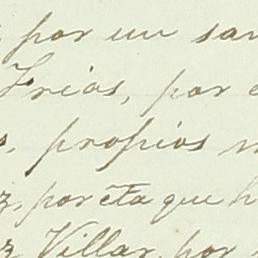 por un san
Frias, por
propios
por cta que h
Villar, por